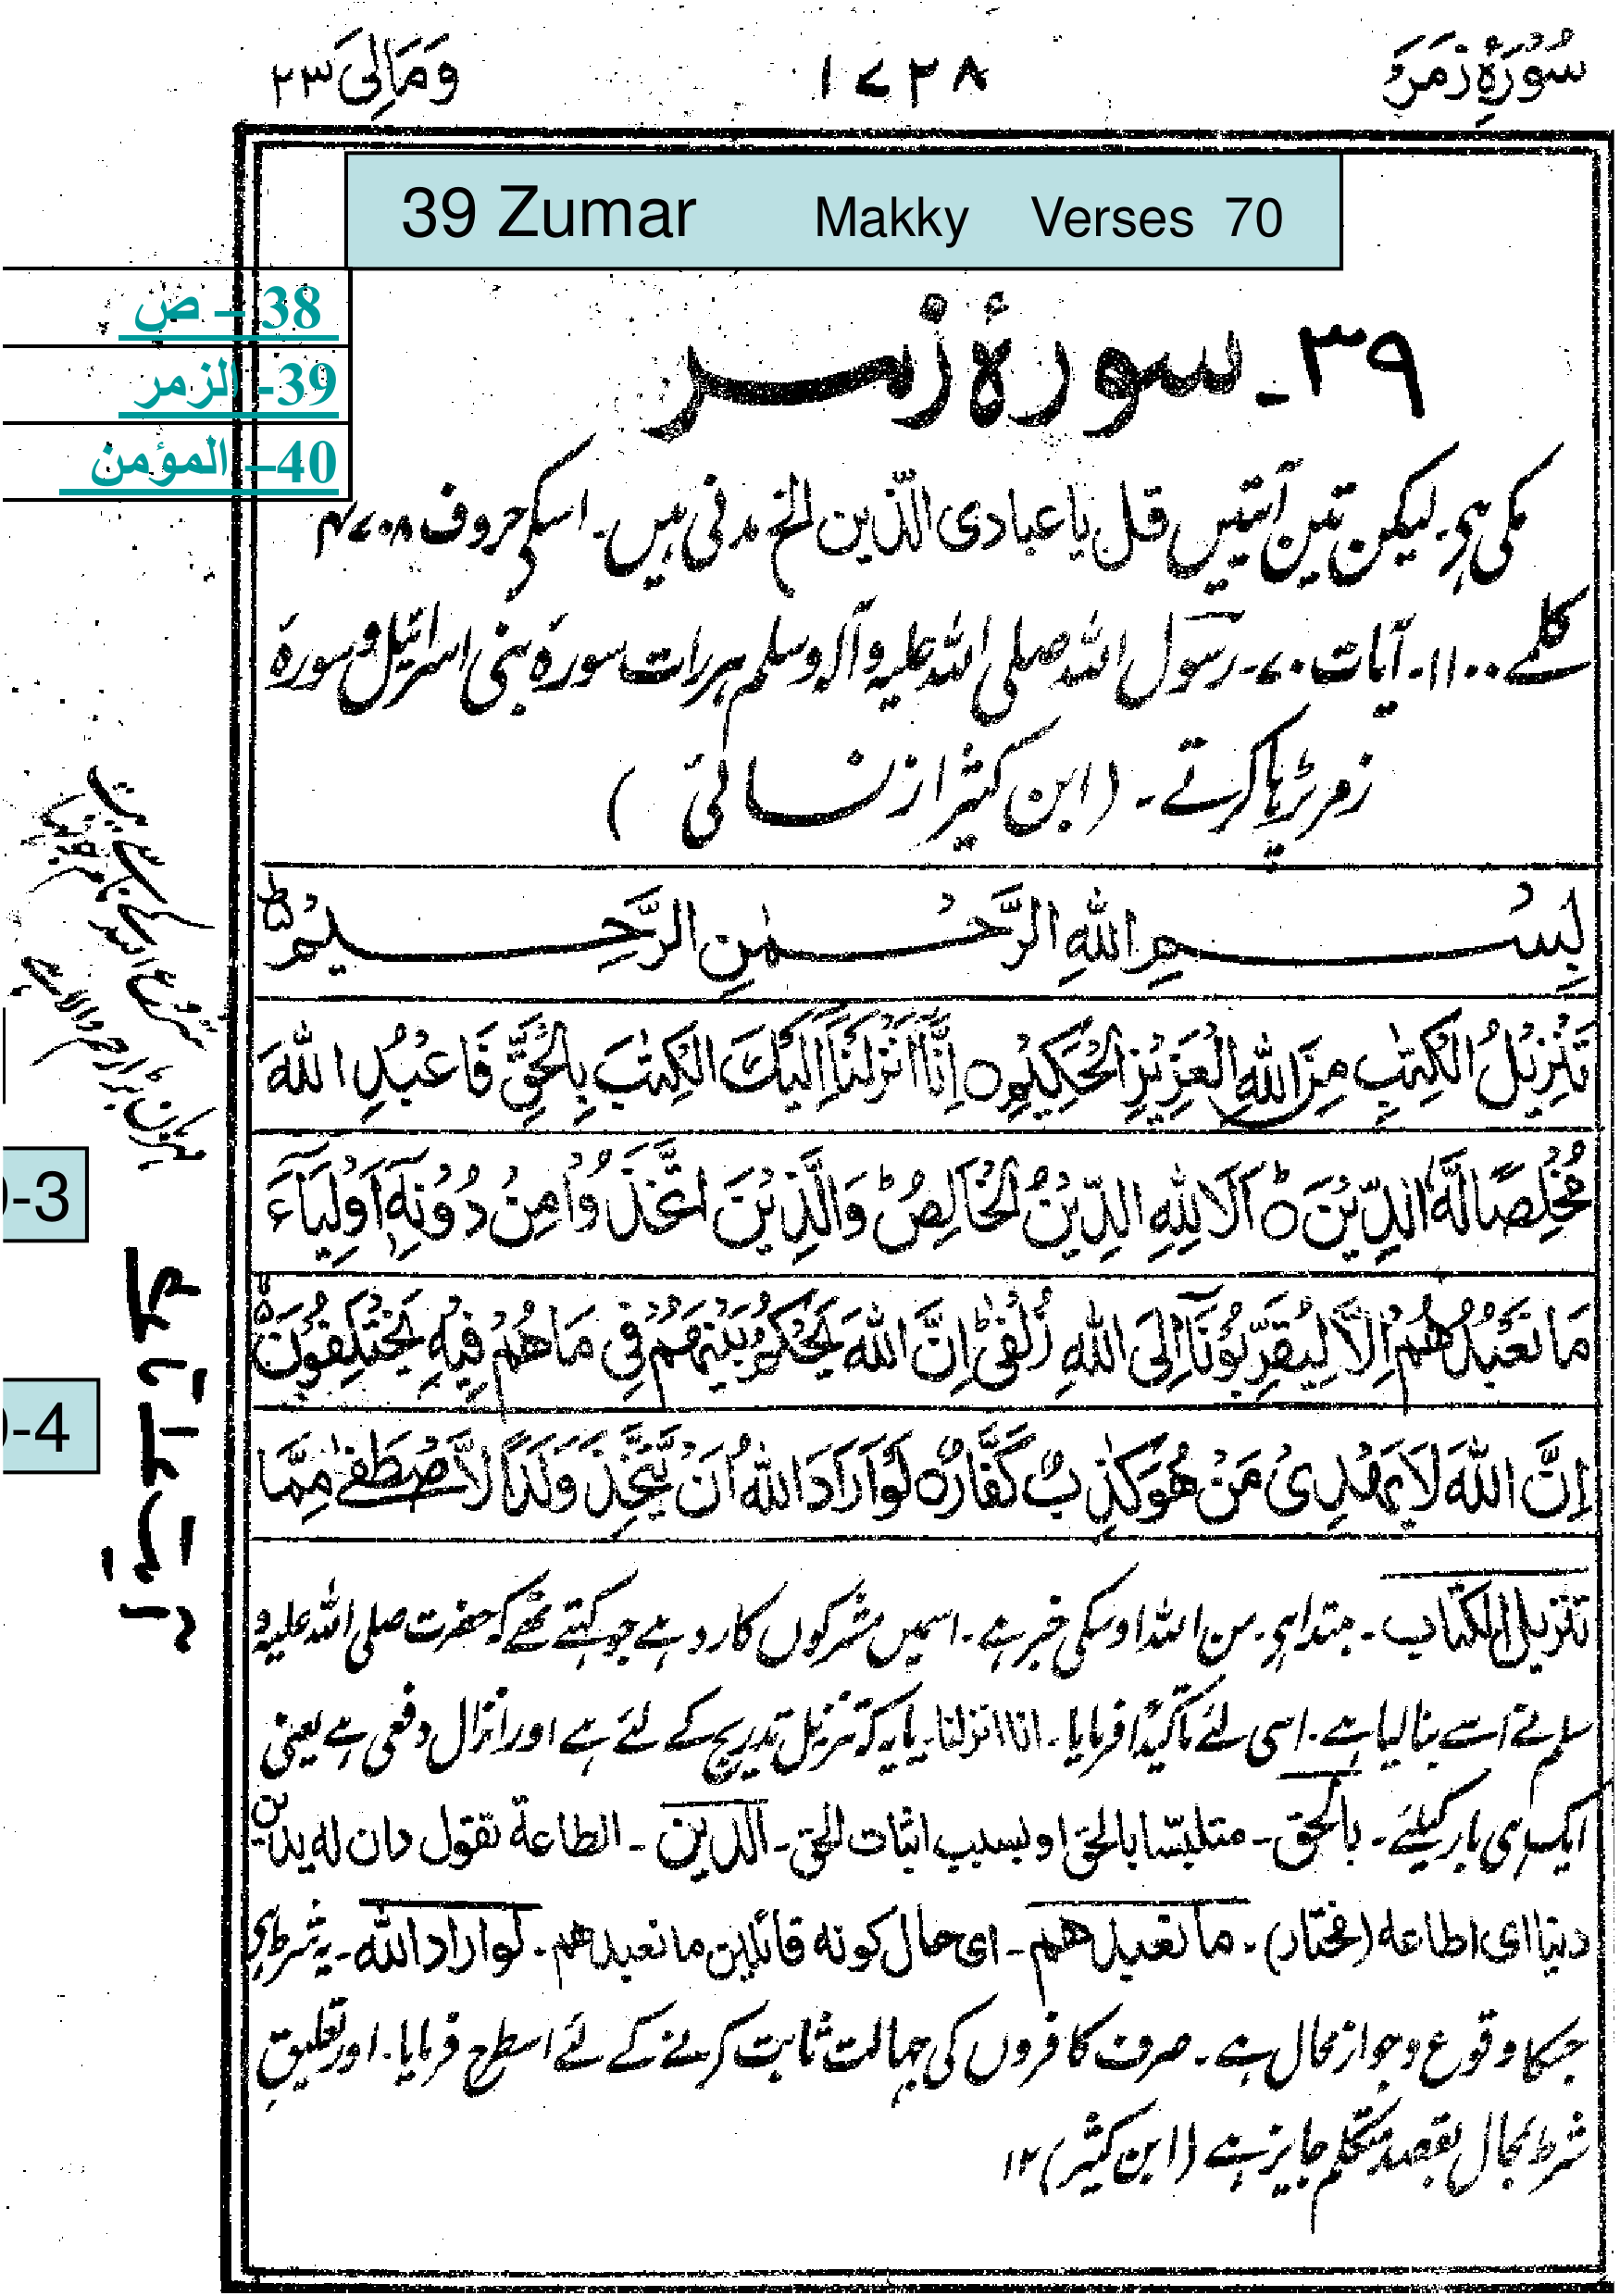 سُوْرَۂِ زُمَرْ
١٤٣٨
وَمَالِیَ ٢٣
39 Zumar Makky Verses 70
38 – ص
39- الزمر
40– المؤمن
٣٩ـ سورۂ زمر
مکی ہی۔ لیکن تین آیتیں قل یا عبادی الذین الخ مدنی ہیں۔ اسکی حروف ۴۷۰۸
کلمے ۱۱۰۰۔ آیات ۷۰۔ رسول اللہ صلی اللہ علیہ وآلہ وسلم ہر رات سورۃ بنی اسرائیل و سورۃ
زمر پڑہا کرتے۔ (ابن کثیر از نسائی)
بِسْمِ اللهِ الرَّحْمٰنِ الرَّحِيْمِ ط
تَنْزِيْلُ الْكِتٰبِ مِنَ اللهِ الْعَزِيْزِ الْحَكِيْمِ ○ اِنَّآ اَنْزَلْنَآ اِلَيْكَ الْكِتٰبَ بِالْحَقِّ فَاعْبُدِ اللهَ
مُخْلِصًا لَّهُ الدِّيْنَ ○ اَلَا لِلهِ الدِّيْنُ الْخَالِصُ ط وَالَّذِيْنَ اتَّخَذُوْا مِنْ دُوْنِهٖٓ اَوْلِيَآءَ
مَا نَعْبُدُهُمْ اِلَّا لِيُقَرِّبُوْنَآ اِلَى اللهِ زُلْفٰى ط اِنَّ اللهَ يَحْكُمُ بَيْنَهُمْ فِىْ مَا هُمْ فِيْهِ يَخْتَلِفُوْنَ ه
اِنَّ اللهَ لَا يَهْدِىْ مَنْ هُوَ كٰذِبٌ كَفَّارٌ ○ لَوْ اَرَادَ اللهُ اَنْ يَّتَّخِذَ وَلَدًا لَّاصْطَفٰى مِمَّا
-3
-4
تنزیل الکتاب۔ مبتدا ہی۔ من اللہ اوسکی خبر ہے۔ اسمیں مشرکوں کا رد ہے جو کہتے تھے کہ حضرت صلی اللہ علیہ و
سلم نے اسے بنا لیا ہے۔ اسی لئے تاکیدًا فرمایا۔ انا انزلنا۔ یا یہ کہ تنزیل تدریج کے لئے ہے اور انزال دفعی ہے یعنی
ایک ہی بار کیلئے۔ بالحق۔ متلبسًا بالحق او بسبب اثبات الحق۔ الدین۔ الطاعة تقول دان له يدين
دينا ای اطاعه (مختار)۔ ما نعبدهم۔ ای حال كونه قائلين ما نعبدهم۔ لو اراد الله۔ یہ شرط ہی
جسکا وقوع و جواز محال ہے۔ صرف کافروں کی جہالت ثابت کرنے کے لئے اسطرح فرمایا۔ اور تعلیق
شرط بمحال بقصد متکلم جایز ہے (ابن کثیر) ۱۲